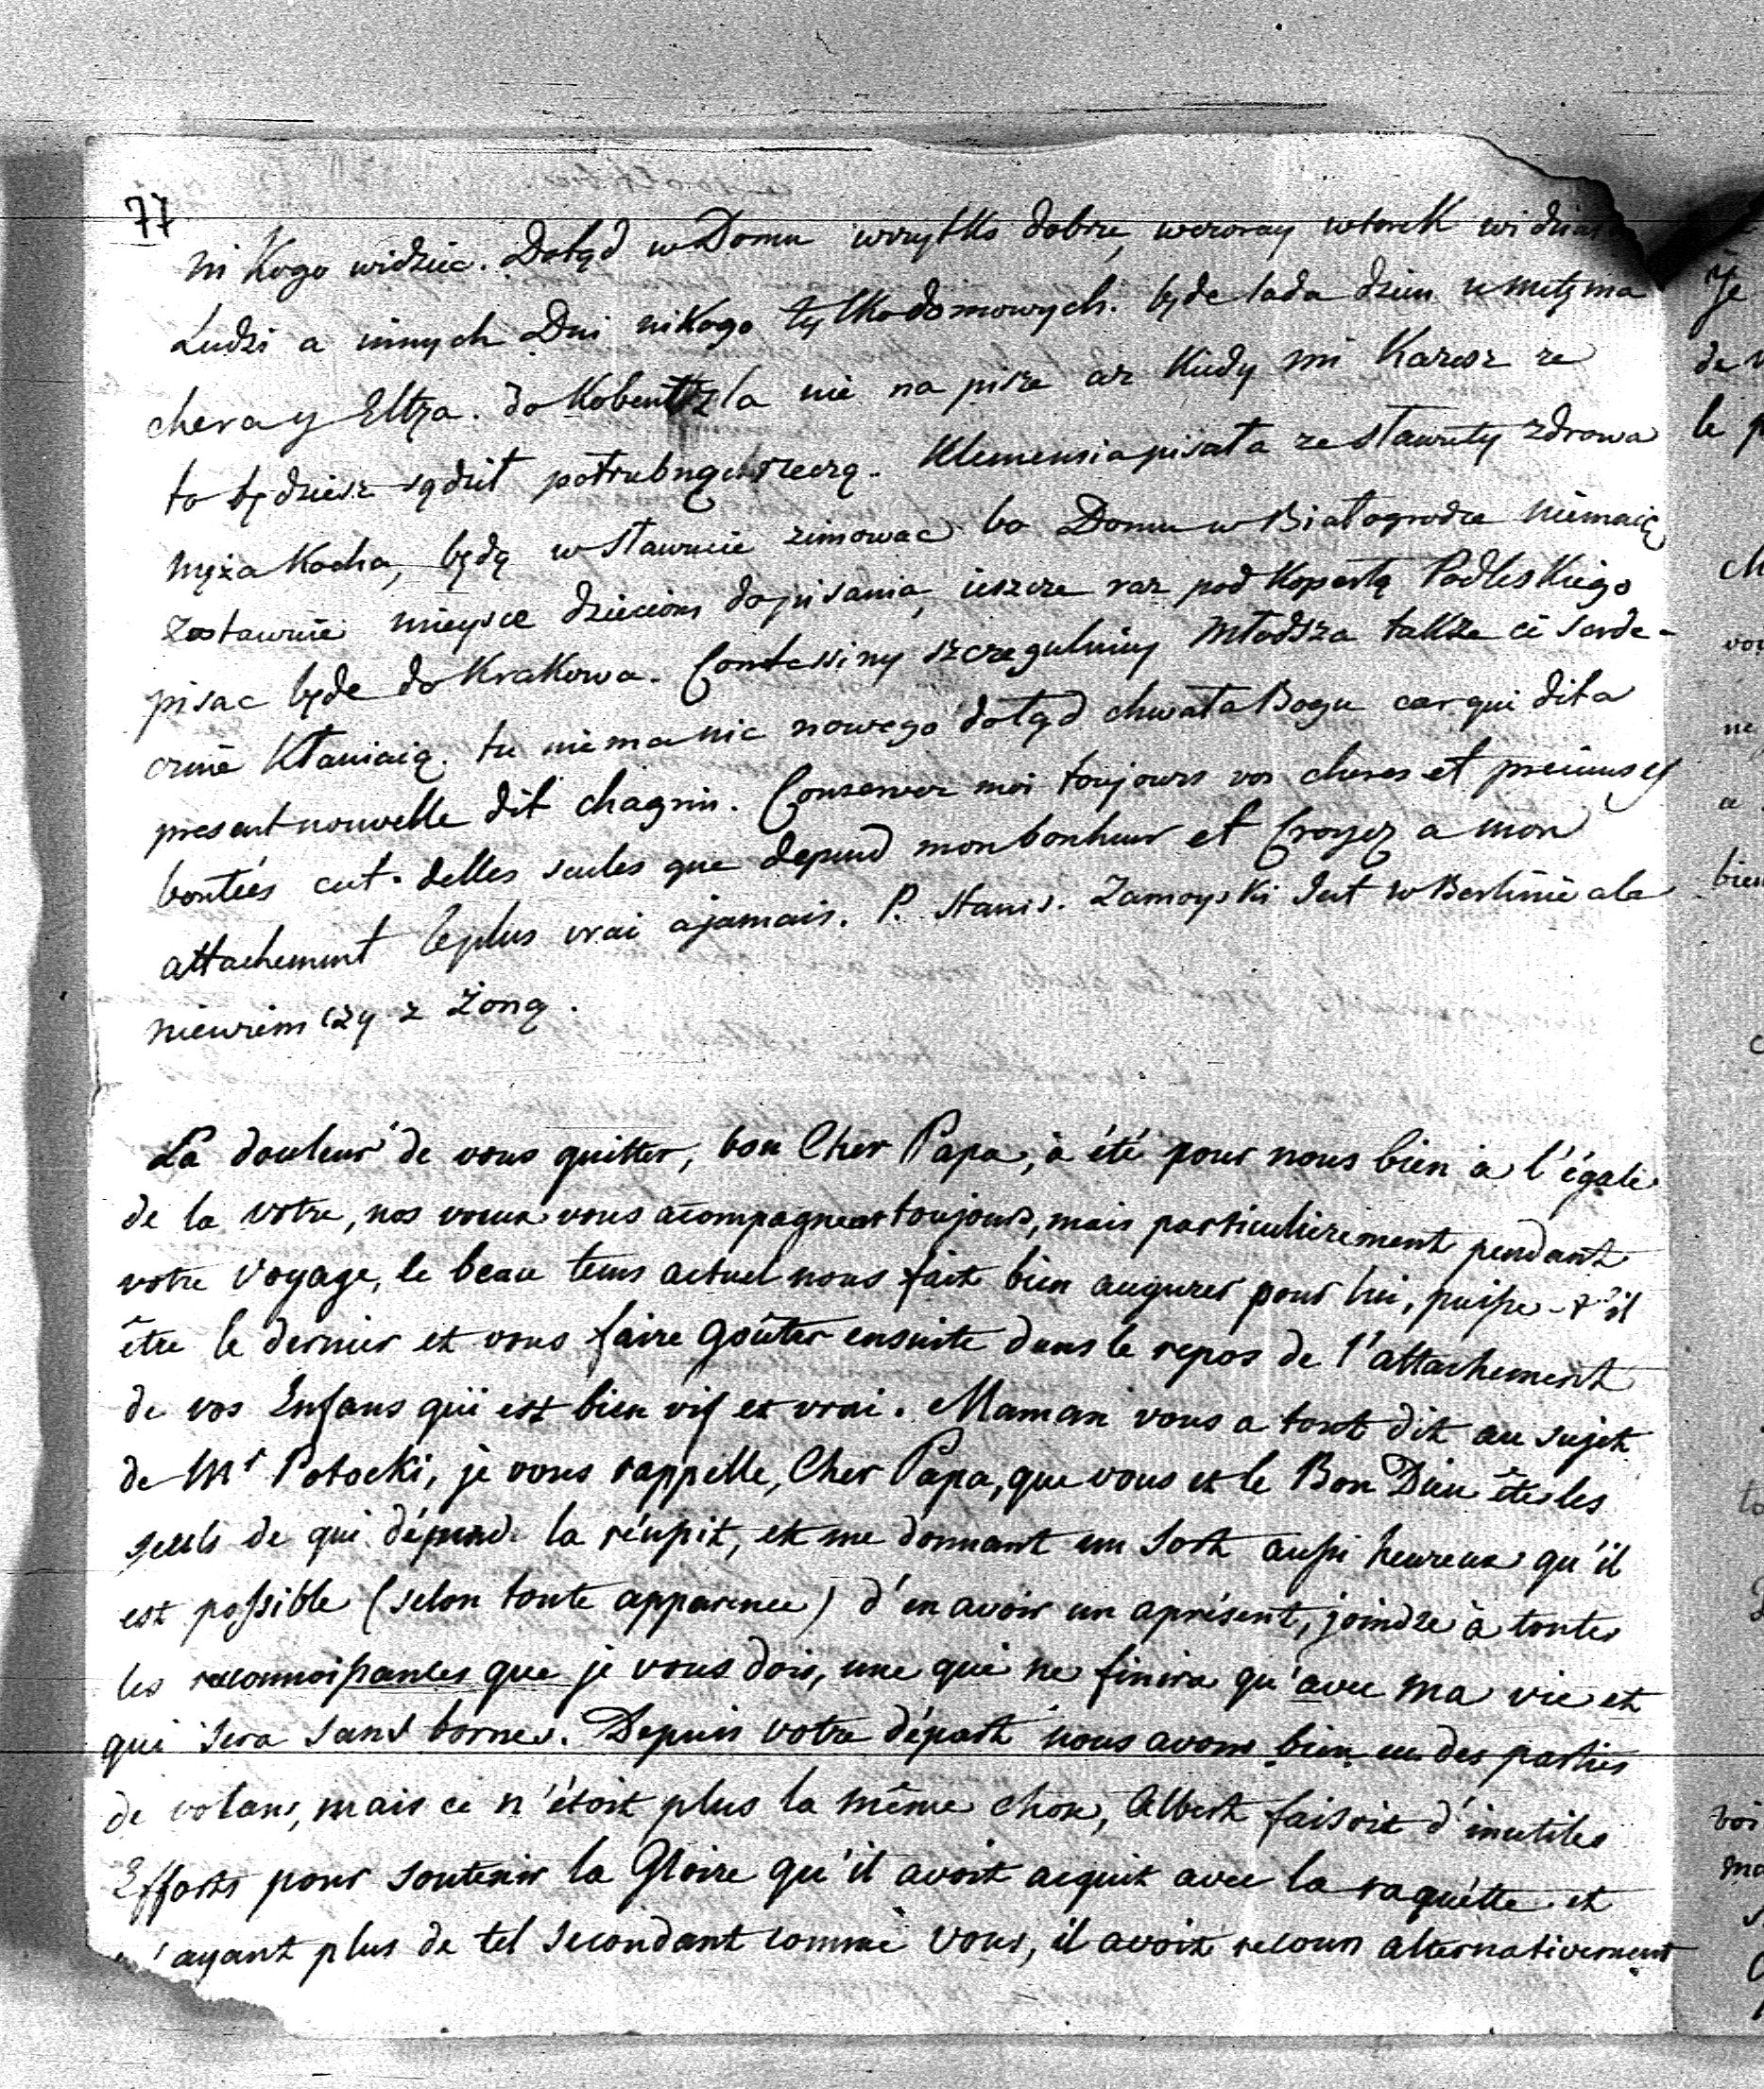 77
ni Kogo widziec. Dotąd w Domu wszytko dobrze, wczoray wtorek widziała
Ludzi a innych Dni nikogo tylko domowych. będe lada dzien u
chera y Eltza. do Kobentzla nie na pisze az Kiedy mi Karesz ze
to będziesz sądził potrzebną rzeczą. Klemensia pisała ze Sławuty zdrowa
męża Kocha, będą w Sławucie zimowac bo Domu w Białogrodce niemaią
zostawuie mieysce dzieciom dopisania, ieszcze raz pod Kopertą Podleskiego
pisac będe do Krakowa. Contessiny szczegulniey Młodsza także ci serde-
cznie Kłaniaią. tu niema nic nowego dotąd chwała Bogu car qui dit a
present nouvelle dit chagrin. Conserver moi toujours vos cheres et precieuses
bontées cest delles seules que depend mon bonheur et Croyez a mon
attachement le plus vrai a jamais. P. Stanis. Zamoyski Jest w Berlinie ale
niewiem czy z Żoną.
La douleur de vous quitter, bon Cher Papa, à été pour nous bien a l'égale
de la votre, nos vœux vous acompagnent toujours, mais particulierement pendant
votre voyage, le beau tems actuel nous fait bien augurer pour lui, puisse-t'il
être le dernier et vous faire goûter ensuite dans le repos de l'attachement
de vos Enfans qui est bien vif et vrai. Maman vous a tout dit au sujet
de Mr Potocki, je vous rappelle, Cher Papa, que vous et le Bon Dieu êtes les
seuls de qui dépend la réussit, et me donnant un Sort aussi heureux qu'il
est possible (selon toute apparence) d'en avoir un aprésent, joindre à toutes
les reconnoissances que je vous dois, une qui ne finira qu'avec ma vie et
qui sera sans bornes. Depuis votre départ nous avons bien eu des parties
de volans, mais ce n'étoit plus la même chose, Albert faisoit d'inutiles
Efforts pour soutenir la Gloire qu'il avoit acquit avec la raquétte et
n'ayant plus de tel secondant comme vous, il avoit recours alternativement